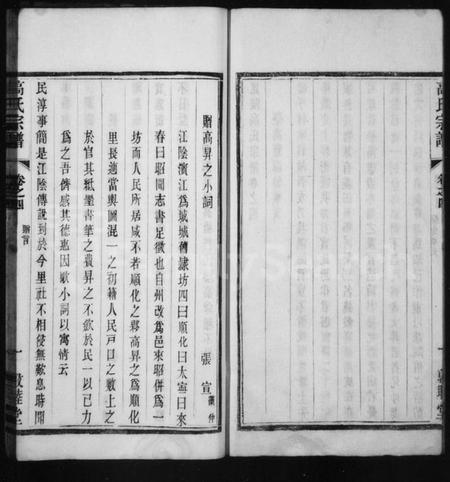 贈高昇之小詞
張宣 藻仲
江陰濱江爲城城舊隸坊四曰順化曰太寧曰來
春曰昭閭志書足徵也自州改爲邑來昭併爲一
坊而人民所居咸不若順化之夥高昇之爲順化
里長適當輿圖混一之初籍人民戶口之數上之
於官其紙墨書筆之費昇之不歛於民一以己力
爲之吾儕感其德惠因歌小詞以寓情云
民淳事簡是江陰傳說到於今里社不相侵無歎息時聞
高氏宗譜
卷之四
贈言
一
敦睦堂
高氏宗譜
卷之四
一
敦睦堂